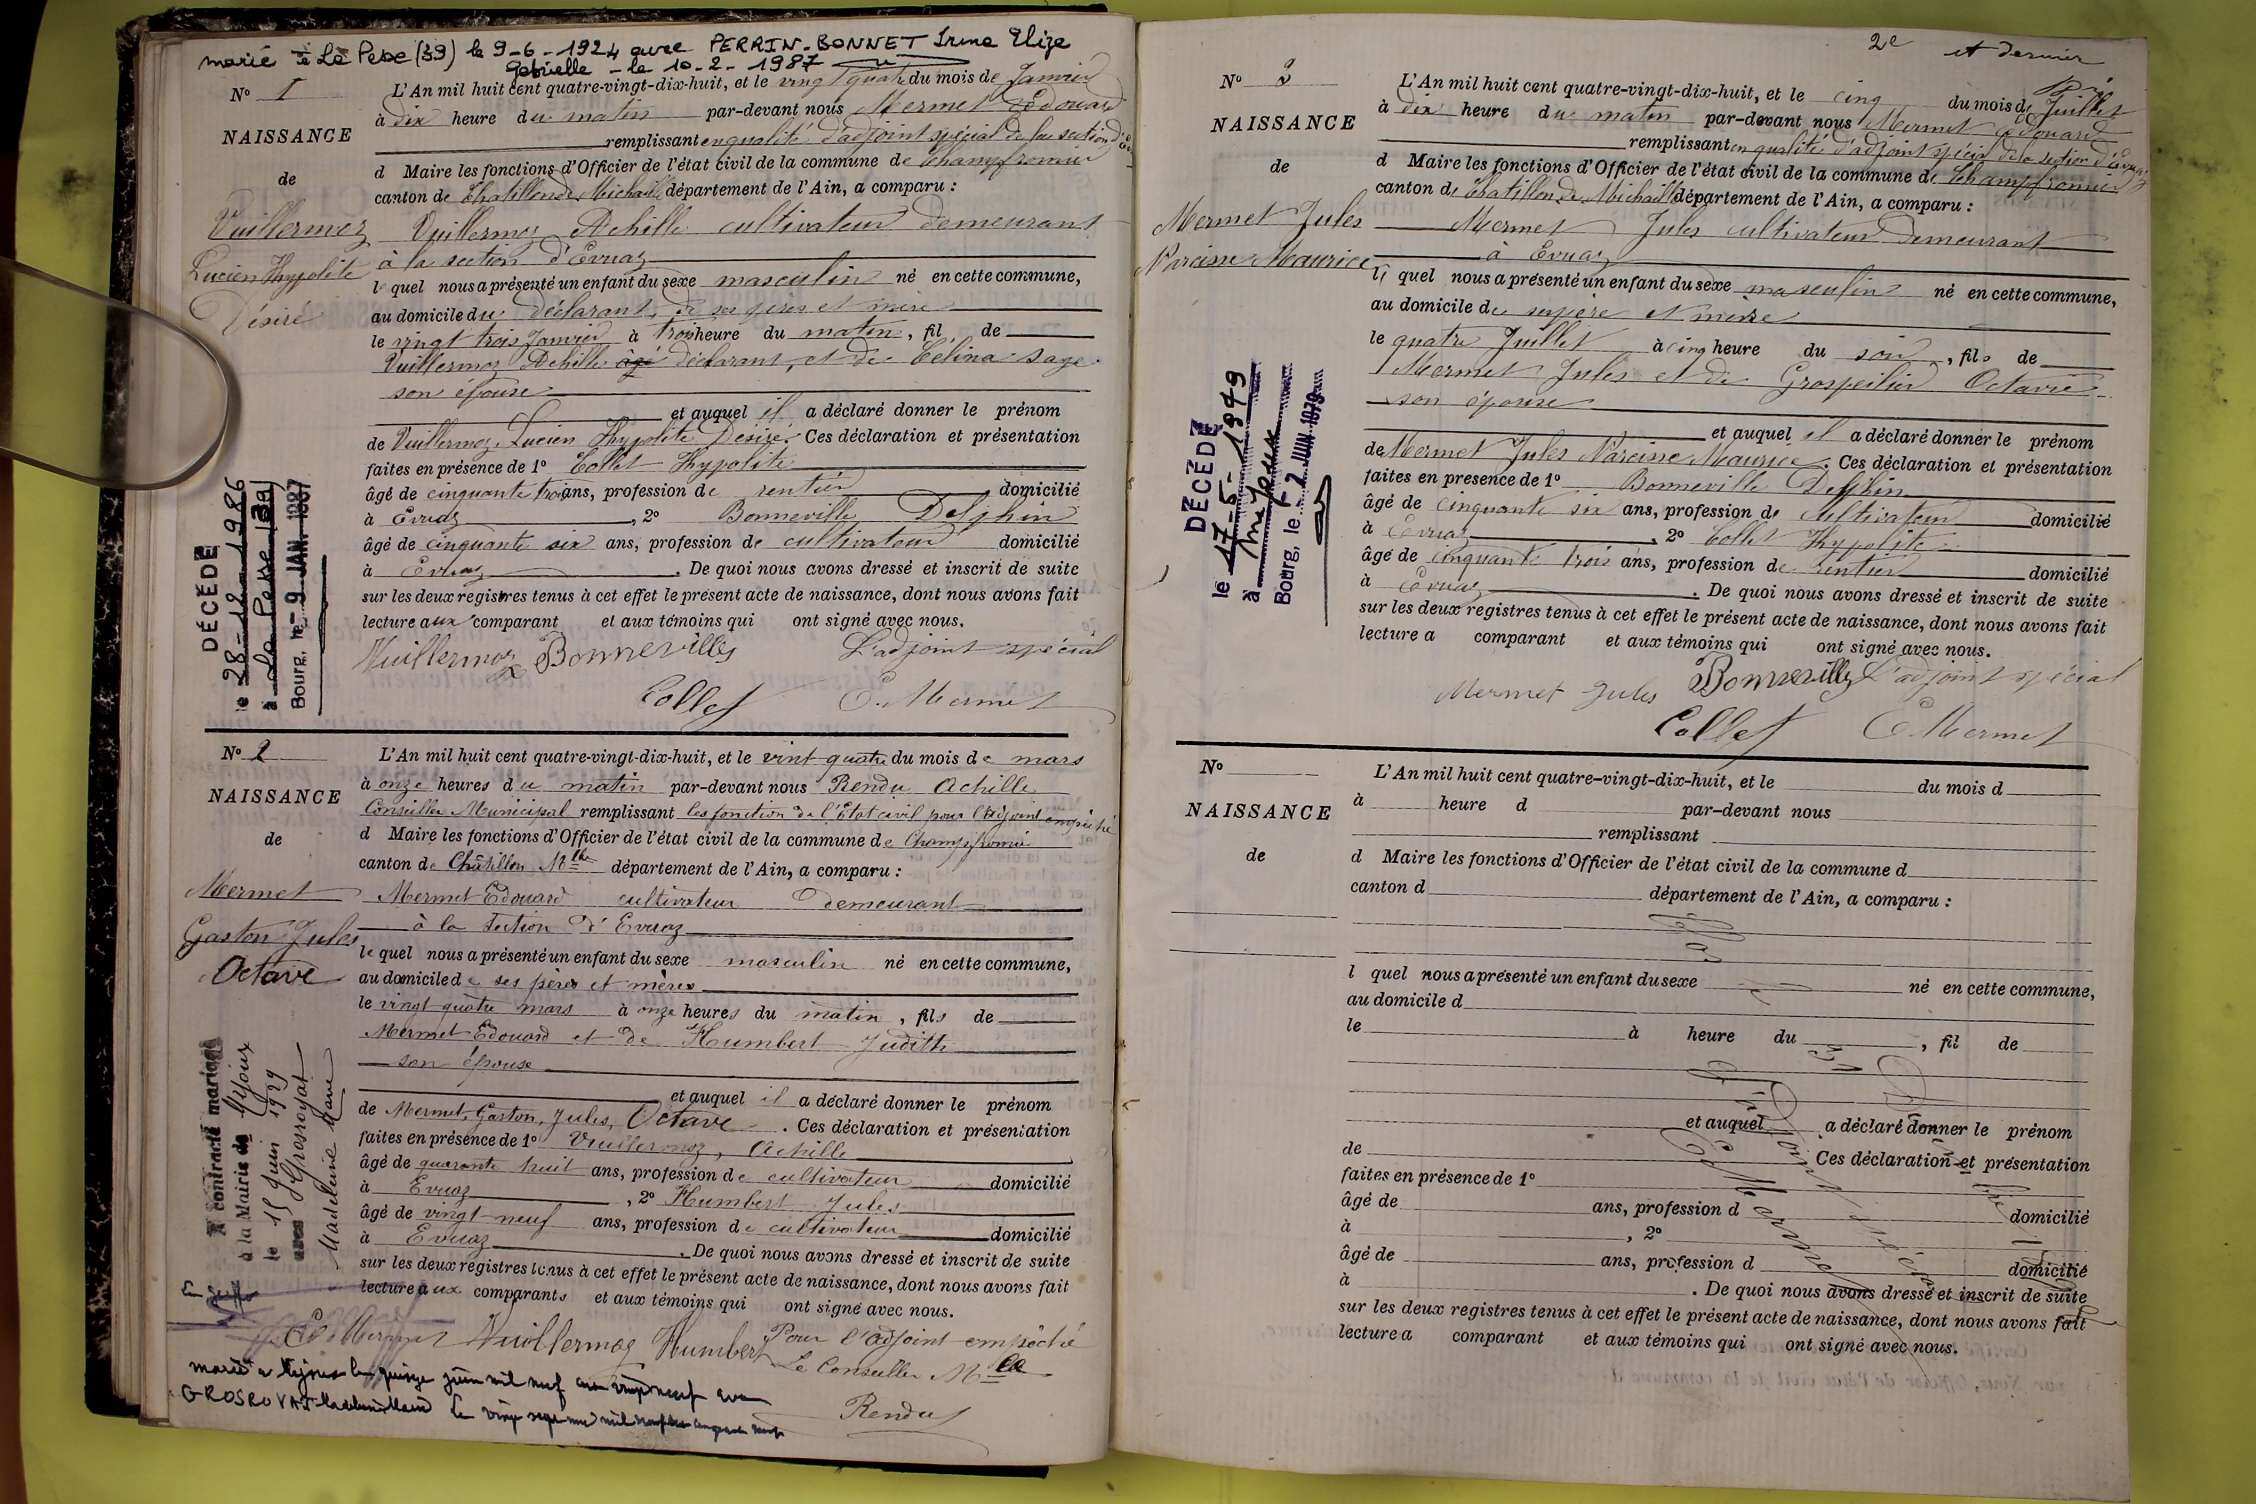 marié à La Pesse (39) le 9-6-1924 avec PERRIN-BONNET Irma Elize
Gabrielle - le 10-2-1987
N° 1
NAISSANCE
de
Vuillermoz
Lucien Hypolite
Désiré
L'An mil huit cent quatre-vingt-dix-huit, et le vingt quatre du mois de Janvier
à dix heure du matin par-devant nous Mermet Edouard
remplissant en qualité d'adjoint spécial de la section d'
d Maire les fonctions d'Officier de l'état civil de la commune de Champfromier
canton de Chatillon de Michaille département de l'Ain, a comparu :
Vuillermoz Achille cultivateur demeurant
à la section d'Evuaz
le quel nous a présenté un enfant du sexe masculin né en cette commune,
au domicile du déclarant, de ses pères et mère
le vingt trois Janvier à trois heure du matin, fil de
Vuillermoz Achille âgé déclarant, et de Célina Sage
son épouse
et auquel il a déclaré donner le prénom
de Vuillermoz Lucien Hypolite Désiré. Ces déclaration et présentation
faites en présence de 1° Collet Hypolite
âgé de cinquante trois ans, profession de rentier domicilié
à Evuaz, 2° Bonneville Delphin
âgé de cinquante six ans, profession de cultivateur domicilié
à Evuaz. De quoi nous avons dressé et inscrit de suite
sur les deux registres tenus à cet effet le présent acte de naissance, dont nous avons fait
lecture aux comparant et aux témoins qui ont signé avec nous.
Vuillermoz Bonneville L'adjoint spécial
Collet E. Mermet
DÉCÉDÉ
le 28-12-1986
à La Pesse (39)
Bourg, le 9 JAN. 1987
N° 2
NAISSANCE
de
Mermet
Gaston Jules
Octave
L'An mil huit cent quatre-vingt-dix-huit, et le vint quatre du mois de mars
à onze heures du matin par-devant nous Rendu Achille
Conseiller Municipal remplissant les fonction de l'Etat civil pour l'Adjoint empêché
d Maire les fonctions d'Officier de l'état civil de la commune de Champfromier
canton de Châtillon Mlle département de l'Ain, a comparu :
Mermet Edouard cultivateur demeurant
à la Section d'Evuaz
le quel nous a présenté un enfant du sexe masculin né en cette commune,
au domicile de ses pères et mères
le vingt quatre mars à onze heures du matin, fils de
Mermet Edouard et de Humbert Judith
son épouse
et auquel il a déclaré donner le prénom
de Mermet, Gaston, Jules, Octave. Ces déclaration et présentation
faites en présence de 1° Vuillermoz, Achille
âgé de quarante huit ans, profession de cultivateur domicilié
à Evuaz, 2° Humbert Jules
âgé de vingt-neuf ans, profession de cultivateur domicilié
à Evuaz. De quoi nous avons dressé et inscrit de suite
sur les deux registres tenus à cet effet le présent acte de naissance, dont nous avons fait
lecture aux comparants et aux témoins qui ont signé avec nous.
Ed Mermet Vuillermoz Humbert Pour l'adjoint empêché
Le Conseiller Mal
Rendu
A contracté mariage
à la Mairie de Mijoux
le 15 Juin 1929
avec Grosroyat
Madeleine Marie
marié à Mijoux le quinze juin mil neuf cent vingt neuf avec
GROSROYAT Madeleine Marie
2e et dernier
N° 3
NAISSANCE
de
Mermet Jules
Narcisse Maurice
L'An mil huit cent quatre-vingt-dix-huit, et le cinq du mois de Juillet
à dix heure du matin par-devant nous Mermet Edouard
remplissant en qualité d'adjoint spécial de la section d'Evuaz
d Maire les fonctions d'Officier de l'état civil de la commune de Champfromier
canton de Chatillon de Michaille département de l'Ain, a comparu :
Mermet Jules cultivateur demeurant
à Evuaz
le quel nous a présenté un enfant du sexe masculin né en cette commune,
au domicile de ses père et mère
le quatre Juillet à cinq heure du soir, fils de
Mermet Jules et de Grospeilier Octavie
son épouse
et auquel il a déclaré donner le prénom
de Mermet Jules Narcisse Maurice. Ces déclaration et présentation
faites en présence de 1° Bonneville Delphin
âgé de cinquante six ans, profession de cultivateur domicilié
à Evuaz, 2° Collet Hypolite
âgé de cinquante trois ans, profession de rentier domicilié
à Evuaz. De quoi nous avons dressé et inscrit de suite
sur les deux registres tenus à cet effet le présent acte de naissance, dont nous avons fait
lecture a comparant et aux témoins qui ont signé avec nous.
Mermet Jules Bonneville L'adjoint spécial
Collet E Mermet
DÉCÉDÉ
le 17-5-1979
à
Bourg, le - 2 JUIN 1979
N°
NAISSANCE
de
L'An mil huit cent quatre-vingt-dix-huit, et le du mois d
à heure d par-devant nous
remplissant
d Maire les fonctions d'Officier de l'état civil de la commune d
canton d département de l'Ain, a comparu :
l quel nous a présenté un enfant du sexe né en cette commune,
au domicile d
le à heure du , fil de
et auquel a déclaré donner le prénom
de Ces déclaration et présentation
faites en présence de 1°
âgé de ans, profession d domicilié
à , 2°
âgé de ans, profession d domicilié
à . De quoi nous avons dressé et inscrit de suite
sur les deux registres tenus à cet effet le présent acte de naissance, dont nous avons fait
lecture a comparant et aux témoins qui ont signé avec nous.
E Mermet